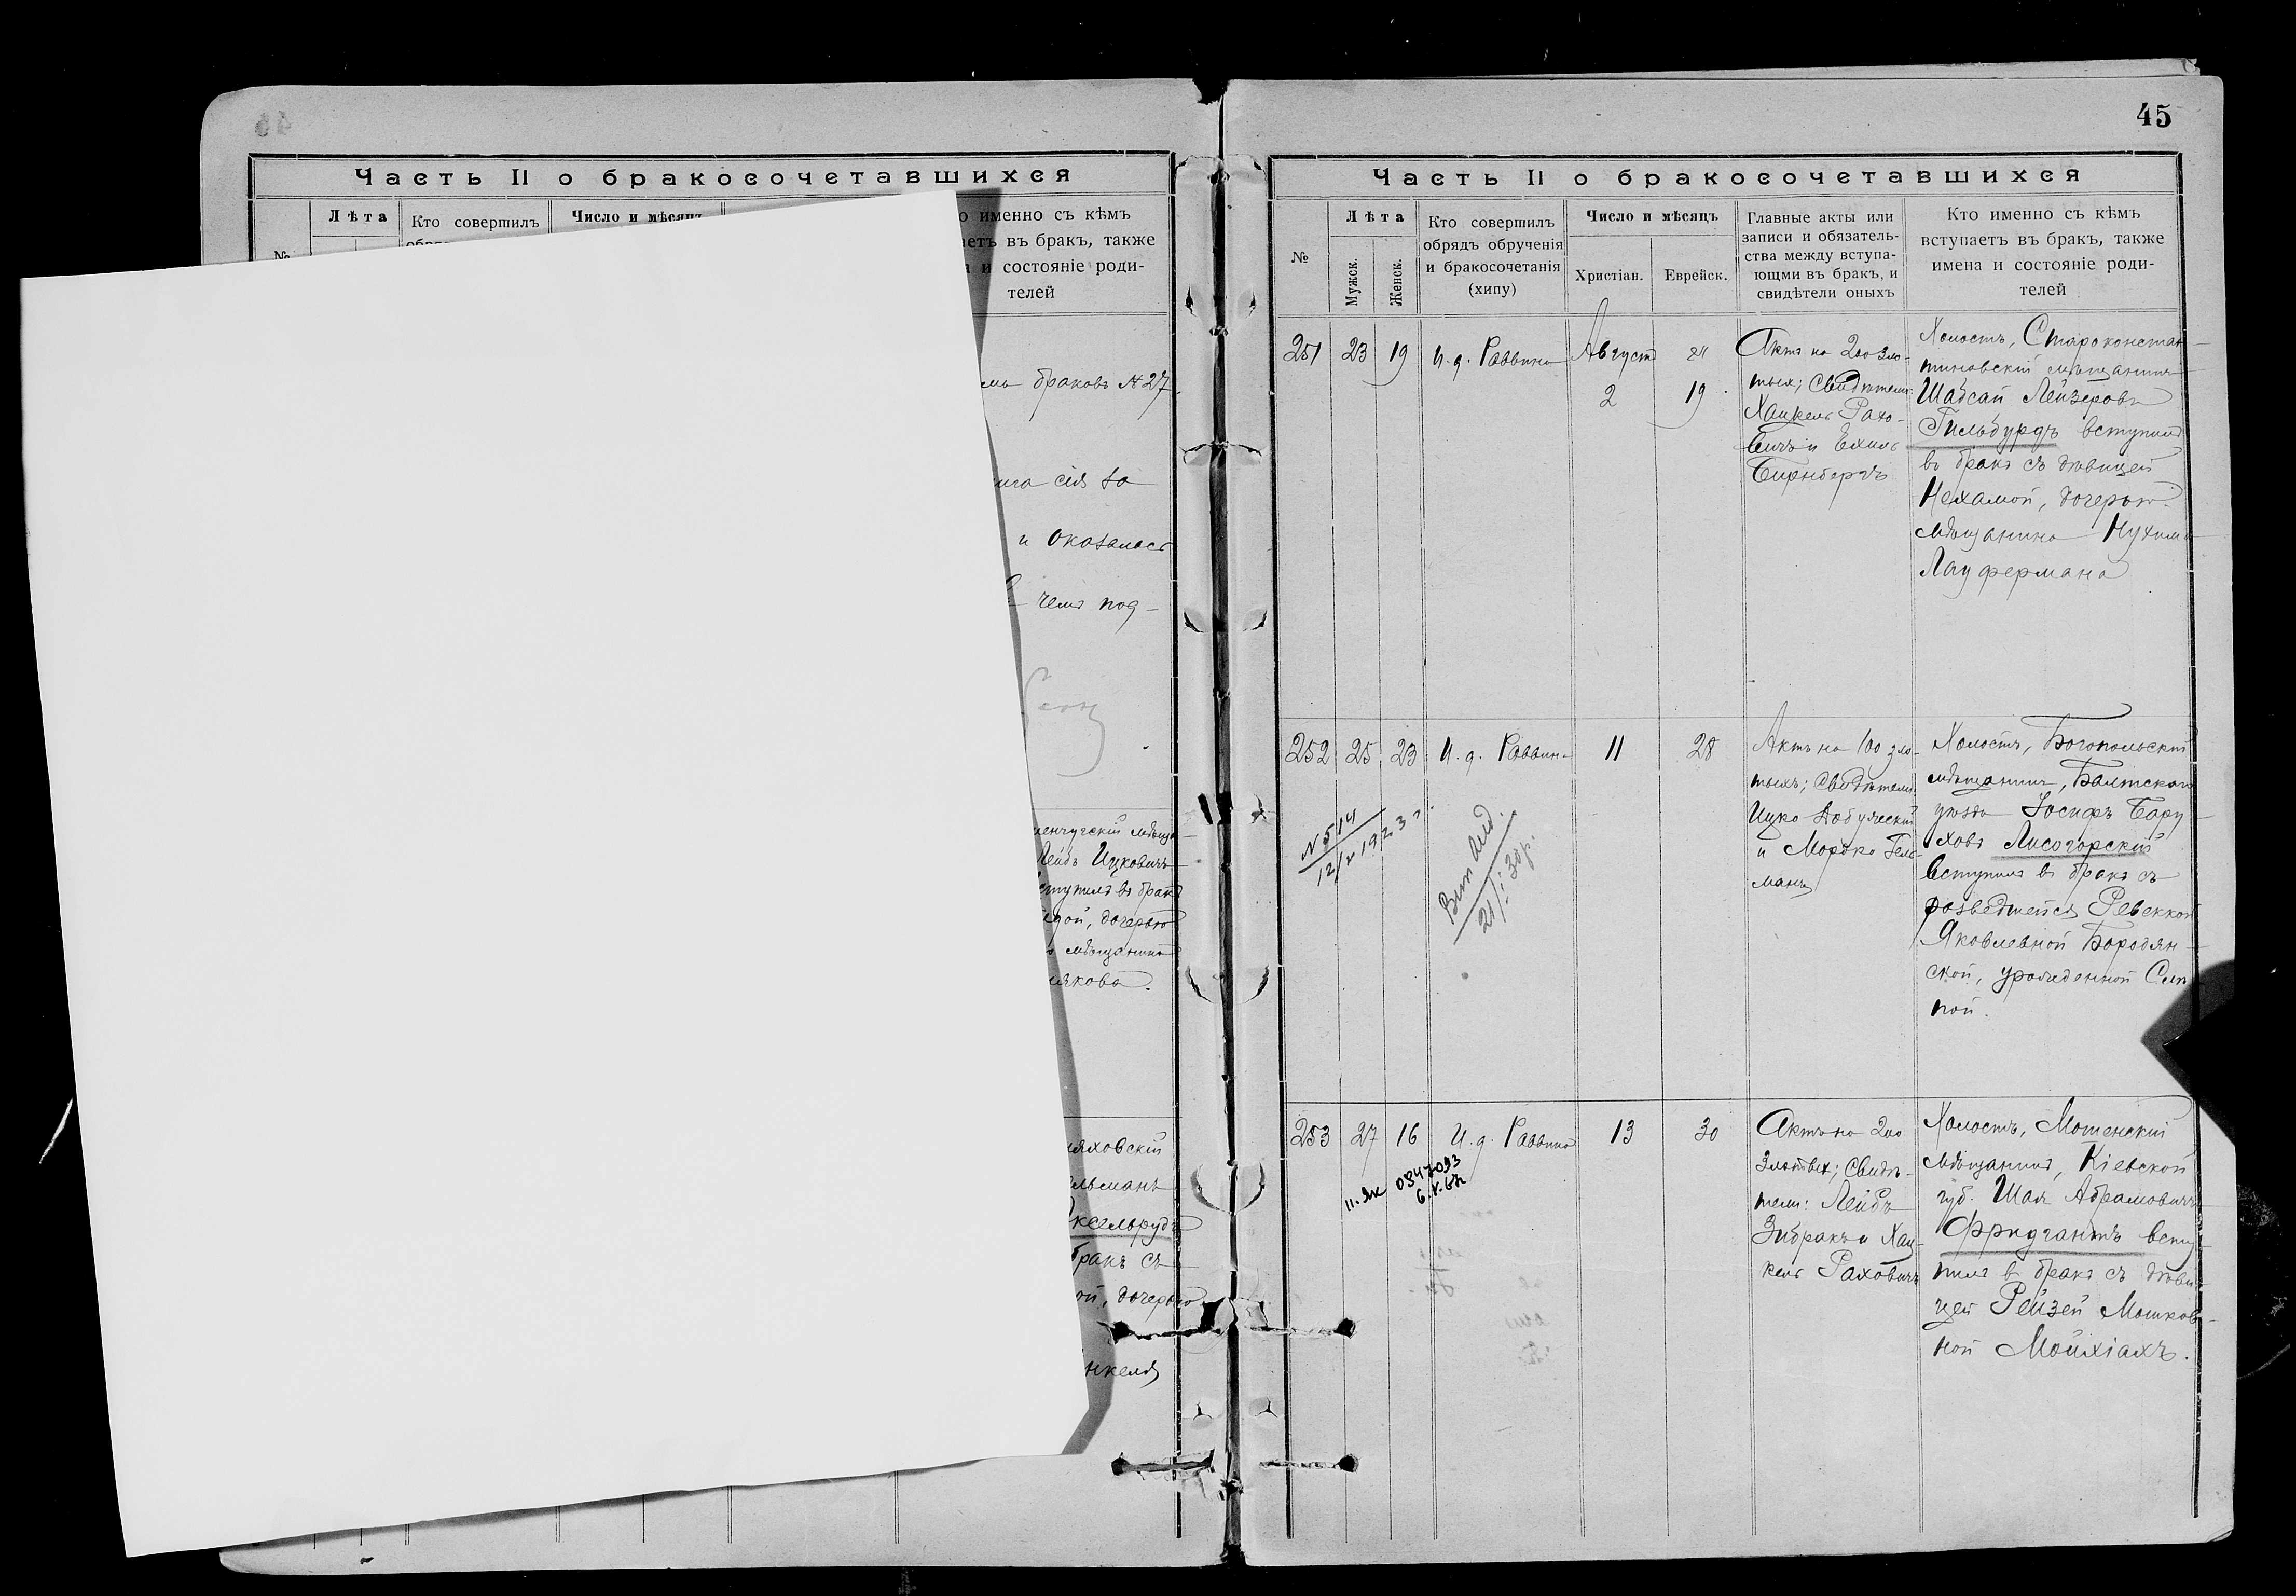 Часть II о бракосочетавшихся
Лѣта
Кто совершилъ
Число и мѣсяцъ
именно съ кѣмъ
въ бракъ, также
и состояніе роди-
телей
№
браковъ № 27
сія
и оказалось
чемъ под-
Лейбъ Ицковичъ
вступилъ въ бракъ
дочерью
мѣщанина
бракъ съ
дочерью
45
Часть II о бракосочетавшихся
№
Лѣта
Мужск.
Женск.
Кто совершилъ
обрядъ обрученія
и бракосочетанія
(хипу)
Число и мѣсяцъ
Христіан.
Еврейск.
Главные акты или
записи и обязатель-
ства между вступа-
ющми въ бракъ, и
свидѣтели оныхъ
Кто именно съ кѣмъ
вступаетъ въ бракъ, также
имена и состояніе роди-
телей
251
23
19
И. д. Раввина
Августъ
2
19
Актъ на 200 зло-
тыхъ; Свидѣтели:
Хацкель Рахо-
вичъ и Ехиль
Бирнбергъ
Холостъ, Староконстан-
тиновскій мѣщанинъ
Шабсай Лейзеровъ
Гильбурдъ вступилъ
въ бракъ съ дѣвицей
Нехамой, дочерью
мѣщанина Нухима
Лауфермана
252
25
23
И. д. Раввина
11
28
Актъ на 100 зло-
тыхъ; Свидѣтели
Ицко
и Мордко Гель-
манъ
Холостъ, Богопольскій
мѣщанинъ, Балтскаго
уѣзда Іосифъ Бару-
ховъ Лисогорскій
вступилъ въ бракъ съ
разведшейся Ревеккой
Яковлевной Бородян-
ской, урожденной Сле-
пой.
N 514
253
27
16
И. д. Раввина
13
30
Актъ на 200
злотыхъ; Свидѣ-
тели: Лейбъ
Зибракъ и Хац-
кель Раховичъ
Холостъ, Мошенскій
мѣщанинъ, Кіевской
губ. Шая Абрамовичъ
Фридгантъ всту-
пилъ въ бракъ съ дѣви-
цей Рейзей Мошков-
ной Мойхіахъ.